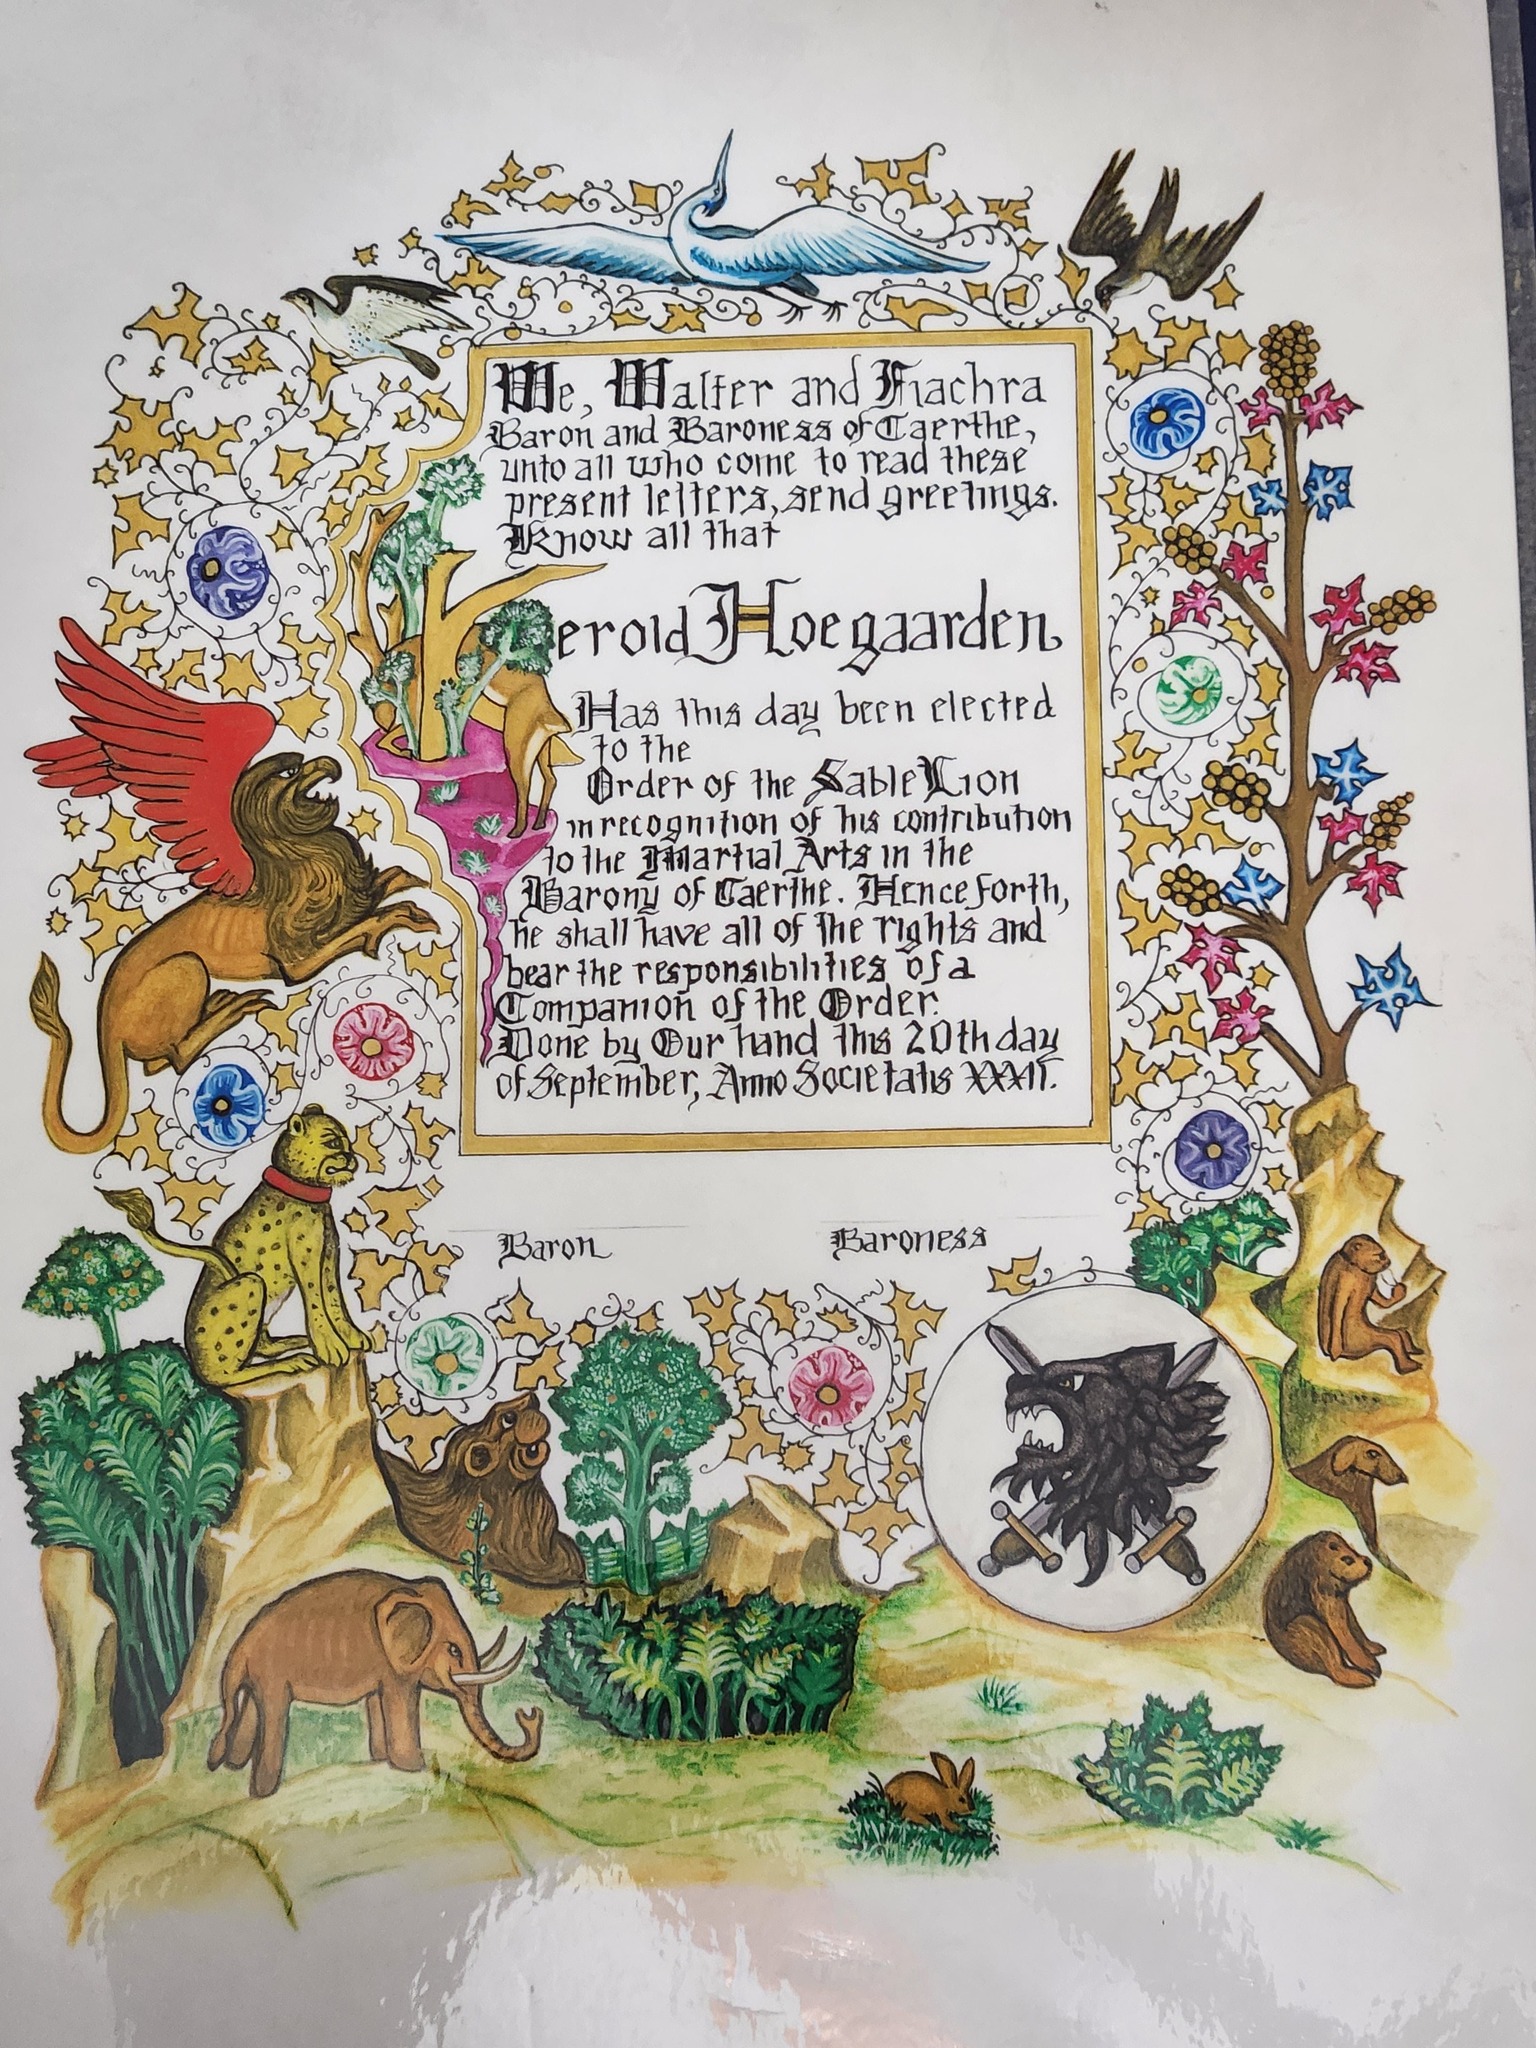 We, Walter and Fiachra
Baron and Baroness of Caerthe,
unto all who come to read these
present letters, send greetings.
Know all that
erold Hoegaarden
Has this day been elected
to the
Order of the Sable Lion
in recognition of his contribution
to the Martial Arts in the
Barony of Caerthe. Henceforth,
he shall have all of the rights and
bear the responsibilities of a
Companion of the Order.
Done by Our hand this 20th day
of September, Anno Societatis XXXII.
Baron
Baroness